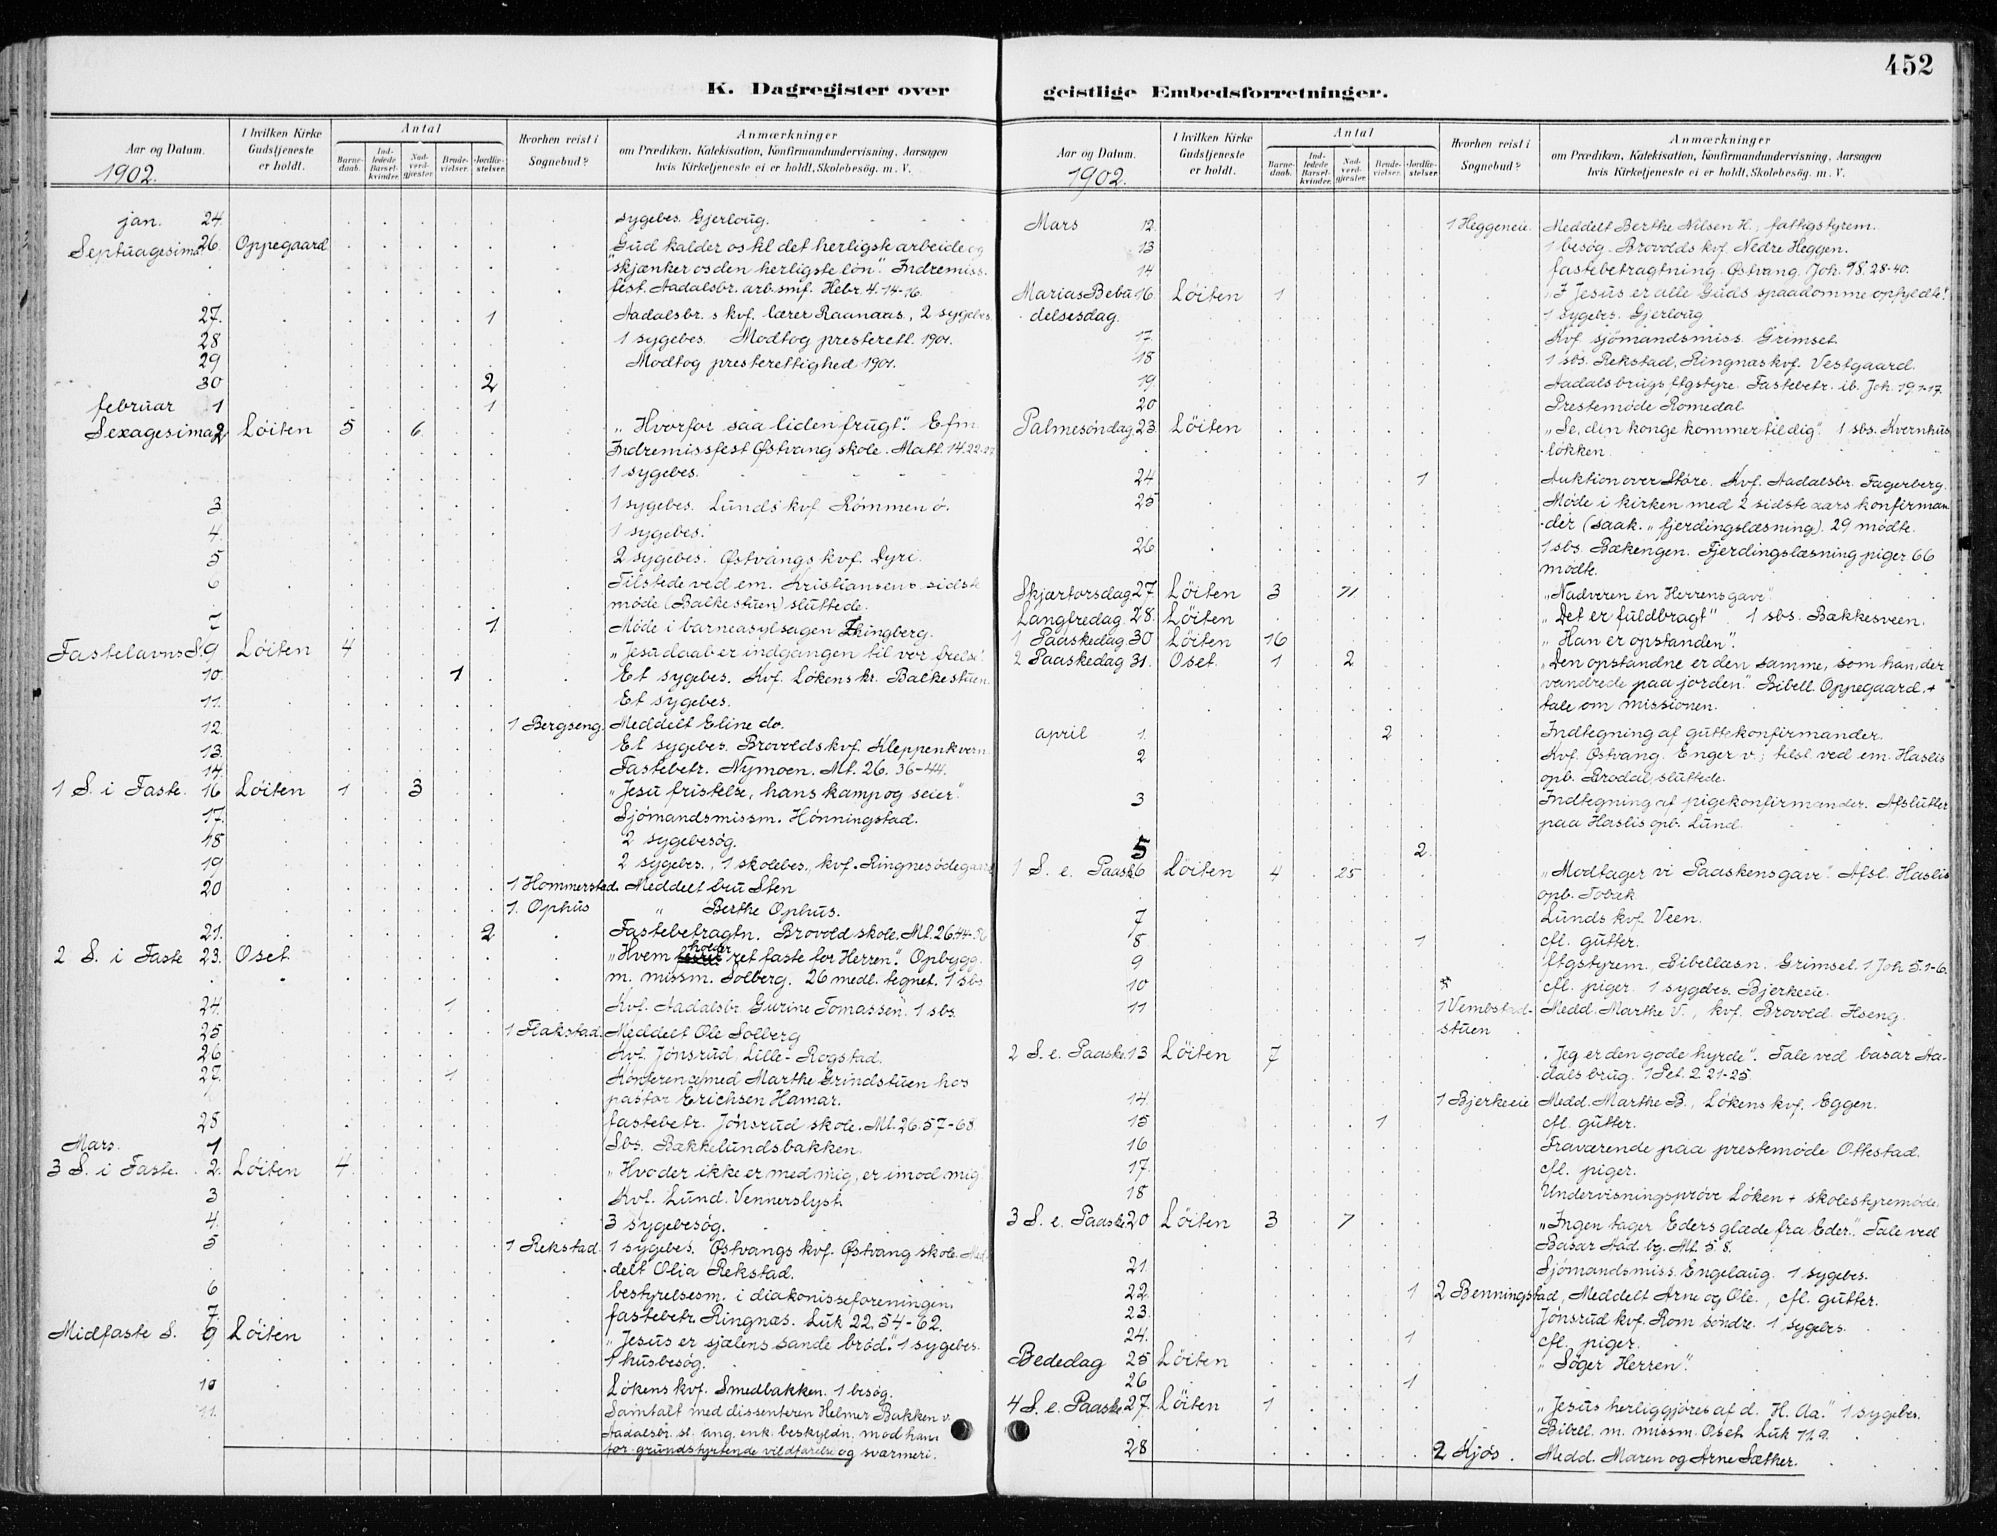 452
K. Dagregister over
Aar og Datum. I hvilken Kirke Gudstjeneste er holdt. Antal Barnedaab. Indledede Barselkvinder. Nadverdgjæster. Brudevielser. Jordfæstelser. Hvorhen reist i Sognebud? Anmærkninger om Prædiken, Katekisation, Konfirmandundervisning, Aarsagen hvis Kirketjeneste ei er holdt, Skolebesøg. m. V.
1902.
jan. 24. sygebes. Gjerloug.
Septuagesima 26. Oppegaard Gud kalder os til det herligste arbeide og
skjænker os den herligste løn". Indremiss.
fest. Aadalsbr. arb.smf. Hebr. 4.14-16.
27. 1 Aadalsbr.s kvf. lærer Raanaas, 2 sygebes.
28 1 sygebes. Modtog presterett. 1901.
29 Modtog presterettighed 1901.
30 2
februar 1 1
Sexagesima 2 Løiten 5 6 „Hvorfor saa liden frugt". Efm.
Indremissfest Østvang skole. Matt. 14.22.
1 sygebes.
3 1 sygebes. Lunds kvf. Rømmen ø.
4. 1 sygebes.
5 2 sygebes. Østvangs kvf. Dyri.
6 Tilstede ved em. Kristiansens sidste
møde (Balkestuen) sluttede.
7 1 Møde i barneasylsagen Thingberg.
Fastelavns S. 9 Løiten 4 „Jesu daab er indgangen til vor frelse".
10. 1 Et sygebes. Kvf. Løkens kr. Balkestuen.
11. Et sygebes.
12. 1 Bergseng. Meddelt Eline do.
13. Et sygebes. Brovolds kvf. Kleppenkvern
14. Fastebetr. Nymoen. Mt. 26. 36-44.
1 S. i Faste. 16 Løiten 1 3 „Jesu fristelse, hans kamp og seier".
17. Sjømandsmissm. Hønningstad.
18 2 sygebesøg.
19 2 sygebes., 1 skolebes., kvf. Ringnesødegaard
20 1 Hommerstad. Meddelt fru Sten
1. Ophus „ Berthe Ophus.
21. 2 Fastebetragtn. Brovold skole. Mt. 26.
2 S. i Faste 23. Oset „Hvem holder ret faste for Herren". Opbygg.
m. missm. Solberg. 26 medl. tegnet. 1 sbs
24. 1 Kvf. Aadalsbr. Gurine Tomassen. 1 sbs.
25 1 Flakstad. Meddelt Ole Solberg
26 Kvf. Jønsrud. Lille-Rogstad.
27. 1 Konference med Marthe Grindstuen hos
pastor Erichsen Hamar.
28 fastebetr. Jønsrud skole. Mt. 26.57-68.
Mars. 1 Sbs. Bakkelundsbakken.
3 S. i Faste. 2. Løiten 4 „Hvo der ikke er med mig, er imod mig"
3 Kvf. Lund. Vennerslyst.
4. 3 sygebesøg.
5 1 Rekstad. 1 sygebes. Østvangs kvf. Østvang skole. Med-
delt Olia Rekstad.
6 bestyrelsesm. i diakonisseforeningen.
7. fastebetr. Ringnæs. Luk 22.54-62.
Midfaste S. 9 Løiten „Jesus er sjælens sande brød". 1 sygebes.
1 husbesøg.
10 Løkens kvf. Smedbakken. 1 besøg.
11. Samtalt med dissenteren Helmer Bakken v.
Aadalsbr. st. ang. enk. beskyldn. mod ham
for grundstyrtende vildfarelse og sværmeri.
geistlige Embedsforretninger.
Aar og Datum. I hvilken Kirke Gudstjeneste er holdt. Antal Barnedaab. Indledede Barselkvinder. Nadverdgjæster. Brudevielser. Jordfæstelser. Hvorhen reist i Sognebud? Anmærkninger om Prædiken, Katekisation, Konfirmandundervisning, Aarsagen hvis Kirketjeneste ei er holdt, Skolebesøg. m. V.
1902.
Mars 12. 1 Heggeneie. Meddelt Berthe Nilsen H., fattigstyrem.
13 1 besøg. Brovolds kvf. Nedre Heggen.
14 fastebetragtning. Østvang. Joh. 18. 28-40.
Marias Bebu 16 Løiten 1 „I Jesus er alle Guds spaadomme opfyldte".
delsesdag. 1 sygebes. Gjerloug
17. Kvf. sjømandsmiss. Grimset.
18 1 sbs. Rekstad, Ringnæs kvf. Vestgaard.
19. Aadalsbrugs ftgstyre. Fastebetr. ib. Joh. 19.1-17.
20 Prestemøde Romedal
Palmesøndag 23. Løiten „Se, den konge kommer til dig" 1 sbs. Kvernhus
løkken.
24 1 Auktion over Støre. Kvf. Aadalsbr. Fagerberg.
25 Møde i kirken med 2 sidste aars konfirman-
der (saak. „fjerdingslæsning). 29 mødte.
26 1 sbs. Bækengen. Fjerdingslæsning piger. 66
mødte.
Skjærtorsdag 27. Løiten 3 71 „Nadveren en Herrens gave".
Langfredag. 28. Løiten „Det er fuldbragt". 1 sbs. Bakkesveen.
1 Paaskedag 30 Løiten 16 „Han er opstanden".
2 Paaskedag 31. Oset. 1 2 „Den opstandne er den samme, som han, der
vandrede paa jorden." Bibell. Oppegaard. +
tale om missionen.
april 1. 2 Indtegning af guttekonfirmander.
2 Kvf. Østvang. Enger v.; tilst. ved em. Haslis
opb. Brodal, sluttede.
3 Indtegning af pigekonfirmander. Afslutter
paa Haslis opb. Lund.
5 2
1 S. e. Paaske 6 Løiten 4 25 „Modtager vi Paaskens gave". Afsl. Haslis
opb.
7 Lunds kvf. Veen.
8 1 cfl. gutter.
9 ftgstyrem. Bibellæsn. Grimset. 1 Joh. 5.1-6.
10 cfl. piger. 1 sygebes. Bjerkeeie.
11 1 Vembstad- Medd. Marthe V., kvf. Brovold. Hseng.
stuen
2 S. e. Paaske. 13 Løiten 7 „Jeg er den gode hyrde". Tale ved basar Aa-
dalsbrug. 1 Pet. 2.21-25.
14. 1 Bjerkeeie Medd. Marthe B., Løkens kvf. Eggen.
15 1 cfl. gutter.
16 Fraværende paa prestemøde Ottestad.
17. cfl. piger.
18 Undervisningsprøve Løken + skolestyremøde.
3 S. e. Paaske 20 Løiten 3 7 „Ingen tager Eders glæde fra Eder". Tale ved
Basar Aad. bg. Mt. 5.8.
21. Sjømandsmiss. Engelaug. 1 sygebes.
22. 1 2 Benningstad, Meddelt Arne og Ole., cfl. gutter.
23. Jønsrud kvf. Rom søndre. 1 sygebes.
24. 1 cfl. piger.
Bededag 25 Løiten „Søger Herren".
26 1
4 S. e. Paaske 27. Løiten 1 „Jesus herliggjøres af d. H. Aa." 1 sygebes.
Bibell. m. missm. Oset Luk 11.9.
28 2 Kjøs. Medd. Maren og Arne Sæther.